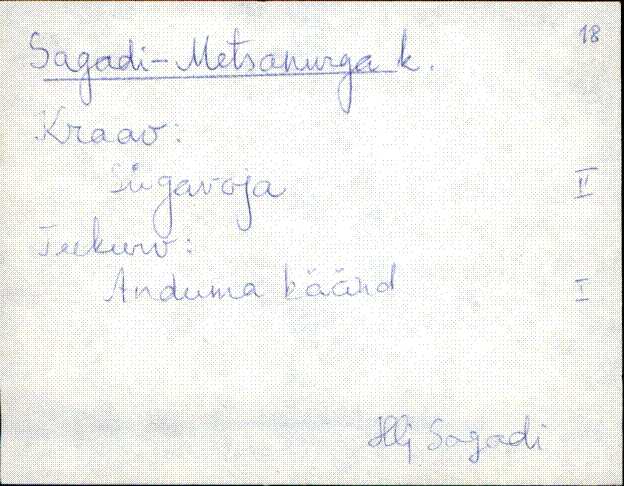 18
Sagadi-Metsanurga k.
Kraav:
Sügavoja II
Teekurv:
Anduma käänd I
Hlj Sagadi